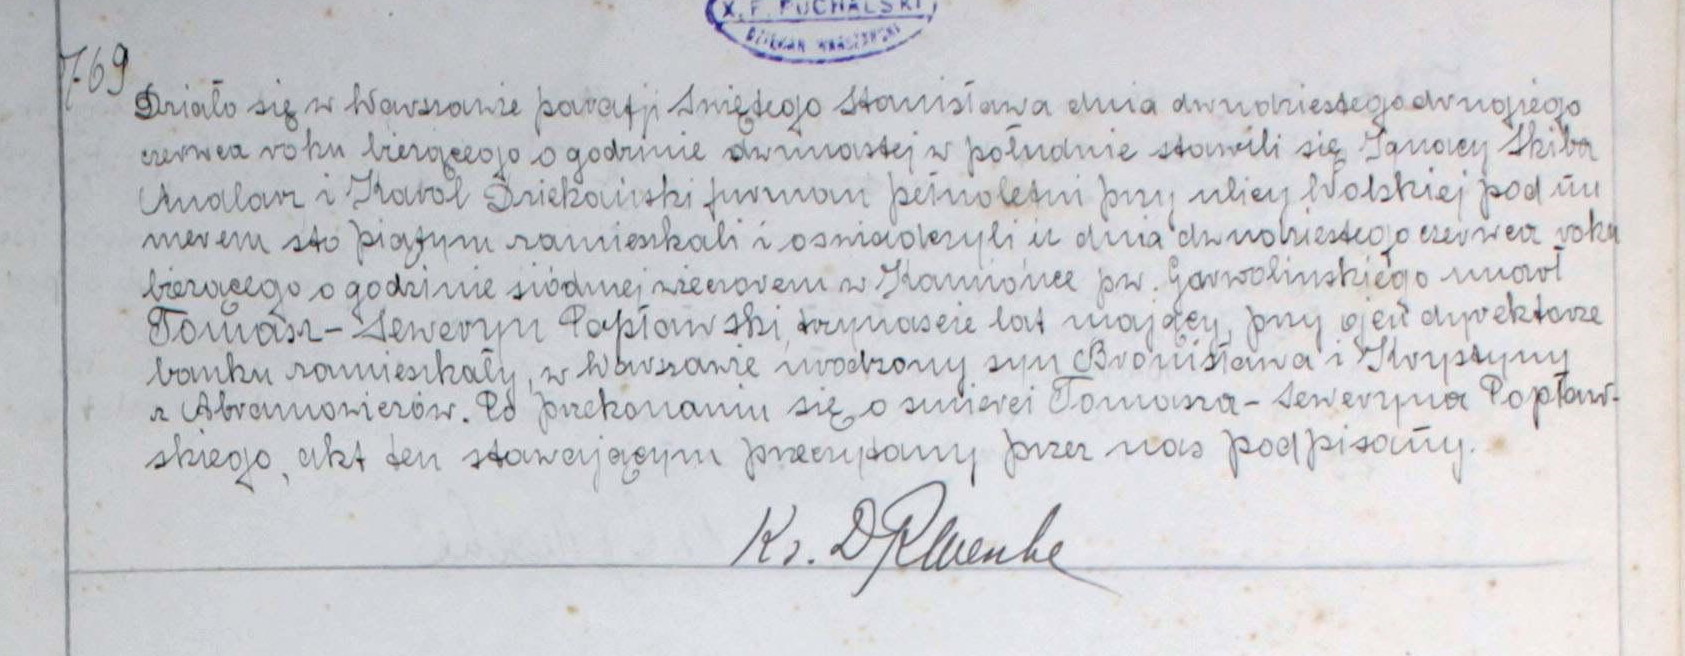 X. F. PUCHALSKI
DZIEKAN WARSZAWSKI
769
Działo się w Warszawie parafji Świętego Stanisława dnia dwudziestego drugiego
czerwca roku bieżącego o godzinie dwunastej w południe stawili się Ignacy Skiba
i Karol Dziekański furman pełnoletni przy ulicy Wolskiej pod nu
merem sto piątym zamieszkali i oświadczyli iż dnia dwudziestego czerwca roku
bieżącego o godzinie siódmej wieczorem w Kamionce pw. Garwolinskiego umarł
Tomasz-Seweryn Popławski, trzynaście lat mający, przy ojcu dyrektorze
banku zamieszkały, w Warszawie urodzony syn Bronisława i Krystyny
z Abramowiczów. Po przekonaniu się o śmierci Tomasza-Seweryna Popław-
skiego, akt ten stawającym przeczytany przez nas podpisany.
Ks.